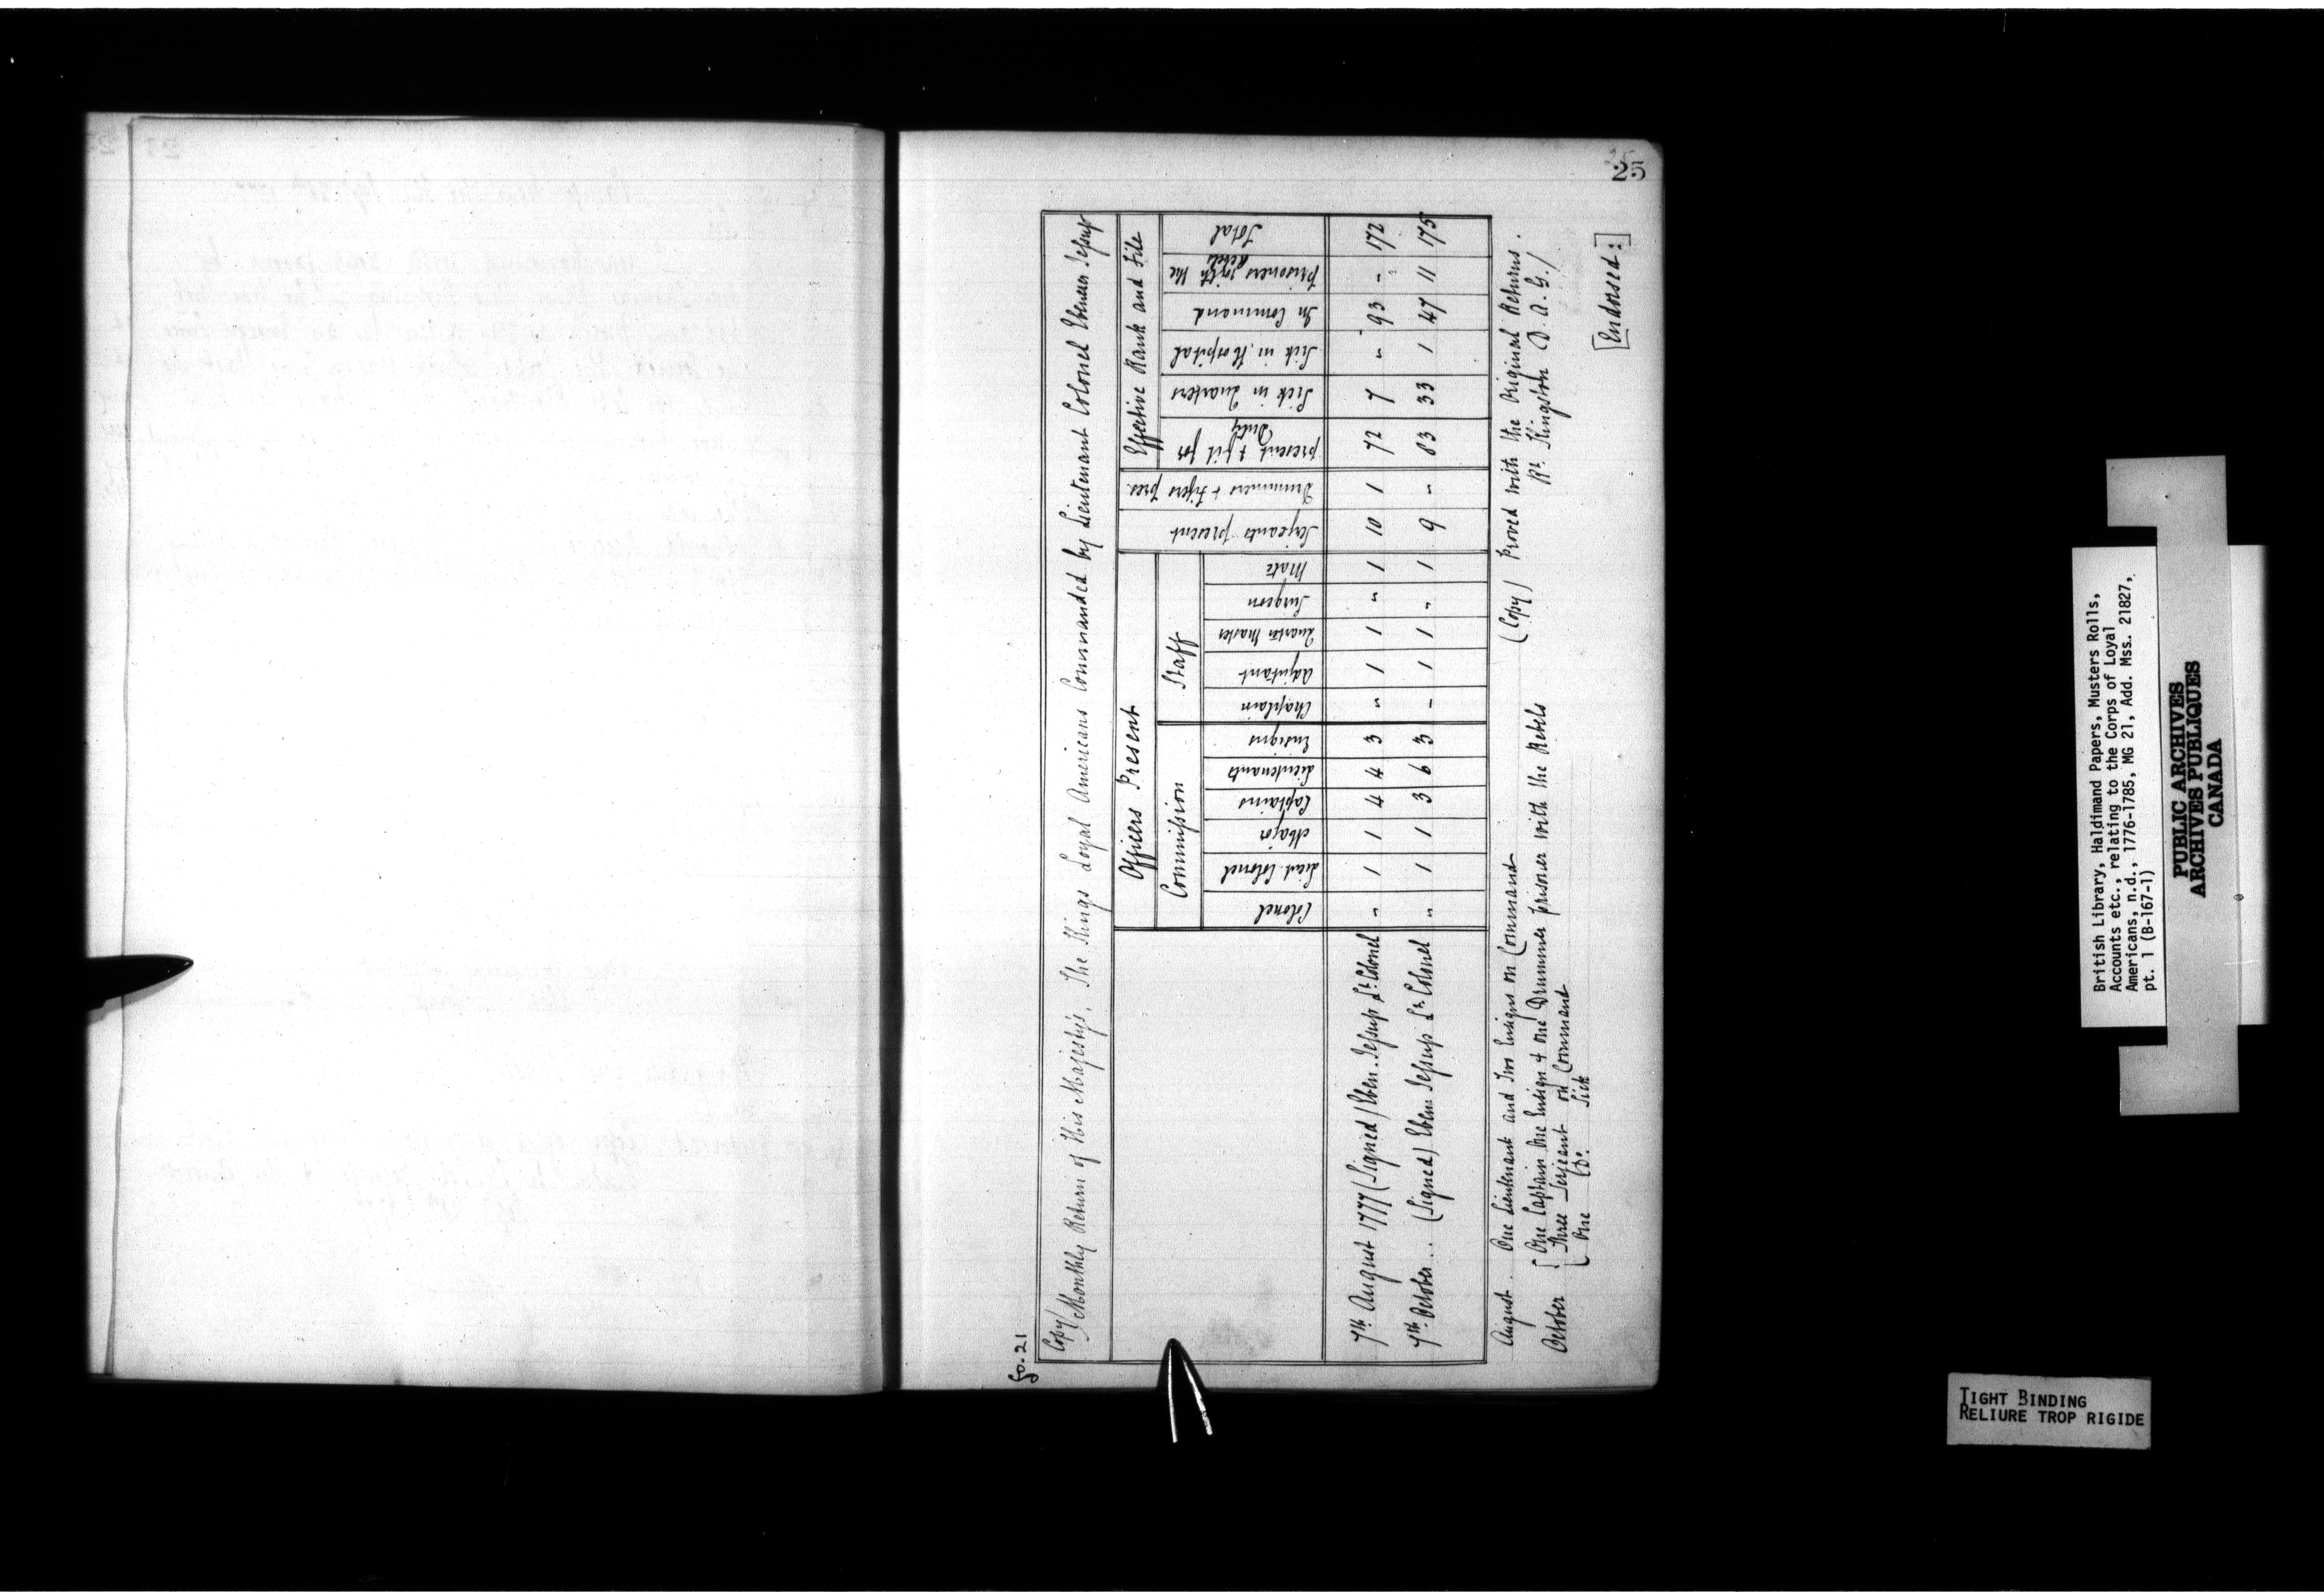 25
fo. 21
Copy/ Monthly Return of His Majesty's, The Kings Loyal Americans Commanded by Lieutenant Colonel Ebenezer Jessup
Officers Present
Effective Rank and File
Commission
Staff
Colonel
Lieut. Colonel
Major
Captains
Lieutenants
Ensigns
Chaplain
Adjutant
Quarter Master
Surgeon
Mate
Serjeants present
Drummers & fifers pres.
present & fit for Duty
Sick in Quarters
Sick in Hospital
On Command
prisoners with the Rebels
Total
7th August 1777 (Signed) Eben. Jessup Lt. Colonel " 1 1 4 4 3 " 1 1 " 1 10 1 72 7 " 93 " 172
7th October .. (Signed) Eben: Jessup Lt. Colonel " 1 1 3 6 3 " 1 1 " 1 9 " 83 33 1 47 11 175
August . One Lieutenant and Two Ensigns on Command
October { One Captain One Ensign & one Drummer prisoner with the Rebels
Three Serjeant on Command
One Do. Sick
(Copy) Proved with the Original Returns.
Rt. Kingston D. A. G./
[Endorsed:]
British Library, Haldimand Papers, Musters Rolls,
Accounts etc., relating to the Corps of Loyal
Americans, n.d., 1776-1785, MG 21, Add. Mss. 21827,
pt. 1 (B-167-1)
PUBLIC ARCHIVES
ARCHIVES PUBLIQUES
CANADA
TIGHT BINDING
RELIURE TROP RIGIDE